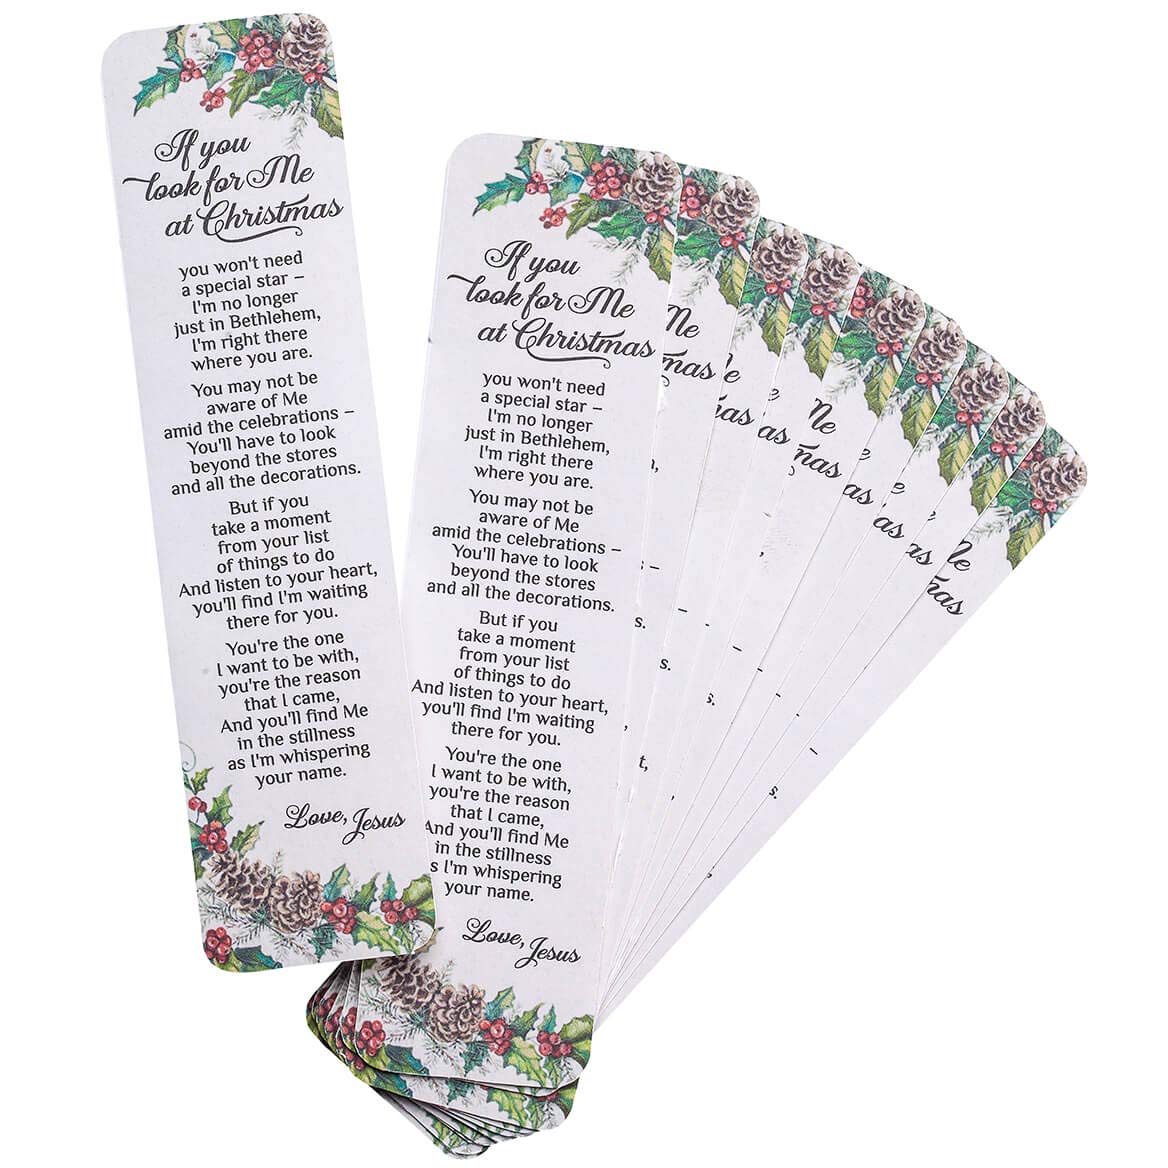 If you
look for Me
at Christmas
you won't need
a special star –
I'm no longer
just in Bethlehem,
I'm right there
where you are.
You may not be
aware of Me
amid the celebrations –
You'll have to look
beyond the stores
and all the decorations.
But if you
take a moment
from your list
of things to do
And listen to your heart,
you'll find I'm waiting
there for you.
You're the one
I want to be with,
you're the reason
that I came,
And you'll find Me
in the stillness
as I'm whispering
your name.
Love, Jesus
If you
look for Me
at Christmas
you won't need
a special star –
I'm no longer
just in Bethlehem,
I'm right there
where you are.
You may not be
aware of Me
amid the celebrations –
You'll have to look
beyond the stores
and all the decorations.
But if you
take a moment
from your list
of things to do
And listen to your heart,
you'll find I'm waiting
there for you.
You're the one
I want to be with,
you're the reason
that I came,
And you'll find Me
in the stillness
s I'm whispering
your name.
Love, Jesus
Me
mas
le
as
as
Me
mas
e
as
e
as
as
Me
mas